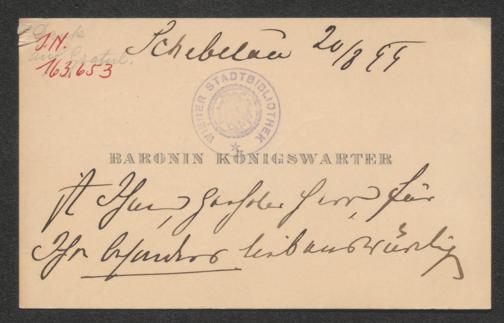 J.N.
163.653
Schebetau 20/8 99
WIENER STADTBIBLIOTHEK
BARONIN KÖNIGSWARTER
ist Ihnen, geehrter Herr, für
Ihr besonders liebenswürdig